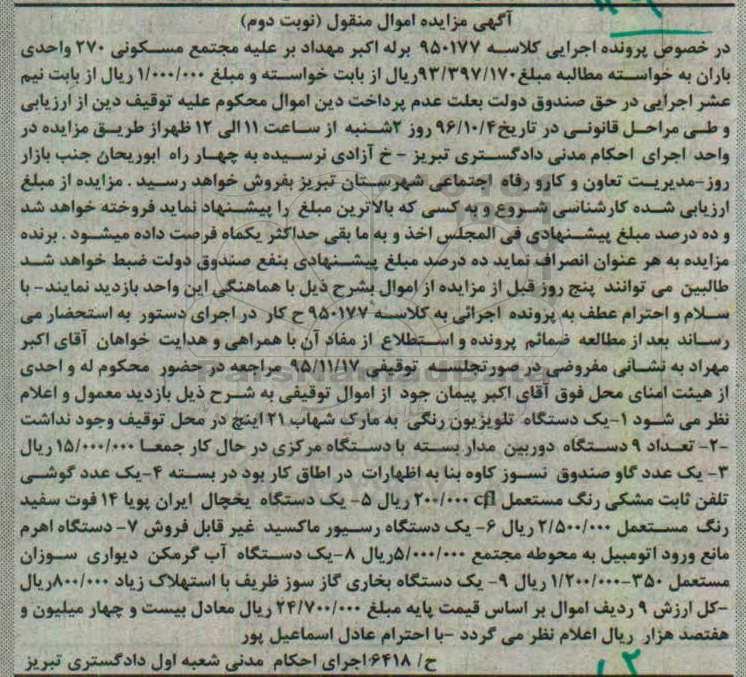 آگهی مزایده اموال منقول (نوبت دوم)
در خصوص پرونده اجرایی کلاسه ۹۵۰۱۷۷ برله اکبر مهداد بر علیه مجتمع مسکونی ۲۷۰ واحدی
باران به خواسته مطالبه مبلغ۹۳/۳۹۷/۱۷۰ریال از بابت خواسته و مبلغ ۱/۰۰۰/۰۰۰ ریال از بابت نیم
عشر اجرایی در حق صندوق دولت بعلت عدم پرداخت دین اموال محکوم علیه توقیف دین از ارزیابی
و طی مراحل قانونی در تاریخ۹۶/۱۰/۴ روز ۲شنبه از ساعت ۱۱الی ۱۲ ظهراز طریق مزایده در
واحد اجرای احکام مدنی دادگستری تبریز - خ آزادی نرسیده به چهار راه ابوریحان جنب بازار
روز-مدیریت تعاون و کارو رفاه اجتماعی شهرستان تبریز بفروش خواهد رسید . مزایده از مبلغ
ارزیابی شده کارشناسی شروع و به کسی که بالاترین مبلغ را پیشنهاد نماید فروخته خواهد شد
و ده درصد مبلغ پیشنهادی فی المجلس اخذ و به ما بقی حداکثر یکماه فرصت داده میشود . برنده
مزایده به هر عنوان انصراف نماید ده درصد مبلغ پیشنهادی بنفع صندوق دولت ضبط خواهد شد
طالبین می توانند پنج روز قبل از مزایده از اموال بشرح ذیل با هماهنگی این واحد بازدید نمایند- با
سلام و احترام عطف به پرونده اجرائی به کلاسه ۹۵۰۱۷۷ ح کار در اجرای دستور به استحضار می
رساند بعد از مطالعه ضمائم پرونده و استطلاع از مفاد آن با همراهی و هدایت خواهان آقای اکبر
مهراد به نشانی مفروضی در صورتجلسه توقیفی ۹۵/۱۱/۱۷ مراجعه در حضور محکوم له و احدی
از هیئت امنای محل فوق آقای اکبر پیمان جود از اموال توقیفی به شرح ذیل بازدید معمول و اعلام
نظر می شود ۱-یک دستگاه تلویزیون رنگی به مارک شهاب ۲۱ اینچ در محل توقیف وجود نداشت
-۲- تعداد ۹ دستگاه دوربین مدار بسته با دستگاه مرکزی در حال کار جمعا ۱۵/۰۰۰/۰۰۰ ریال
۳- یک عدد گاو صندوق نسوز کاوه بنا به اظهارات در اطاق کار بود در بسته ۴-یک عدد گوشی
تلفن ثابت مشکی رنگ مستعمل cfl ۲۰۰/۰۰۰ ریال ۵- یک دستگاه یخچال ایران پویا ۱۴ فوت سفید
رنگ مستعمل ۲/۵۰۰/۰۰۰ ریال ۶- یک دستگاه رسیور ماکسید غیر قابل فروش ۷- دستگاه اهرم
مانع ورود اتومبیل به محوطه مجتمع ۵/۰۰۰/۰۰۰ریال ۸-یک دستگاه آب گرمکن دیواری سوزان
مستعمل ۳۵۰-۱/۲۰۰/۰۰۰ ریال ۹- یک دستگاه بخاری گاز سوز ظریف با استهلاک زیاد ۸۰۰/۰۰۰ریال
-کل ارزش ۹ ردیف اموال بر اساس قیمت پایه مبلغ ۲۴/۷۰۰/۰۰۰ ریال معادل بیست و چهار میلیون و
هفتصد هزار ریال اعلام نظر می گردد -با احترام عادل اسماعیل پور
ح/ ۶۴۱۸ اجرای احکام مدنی شعبه اول دادگستری تبریز